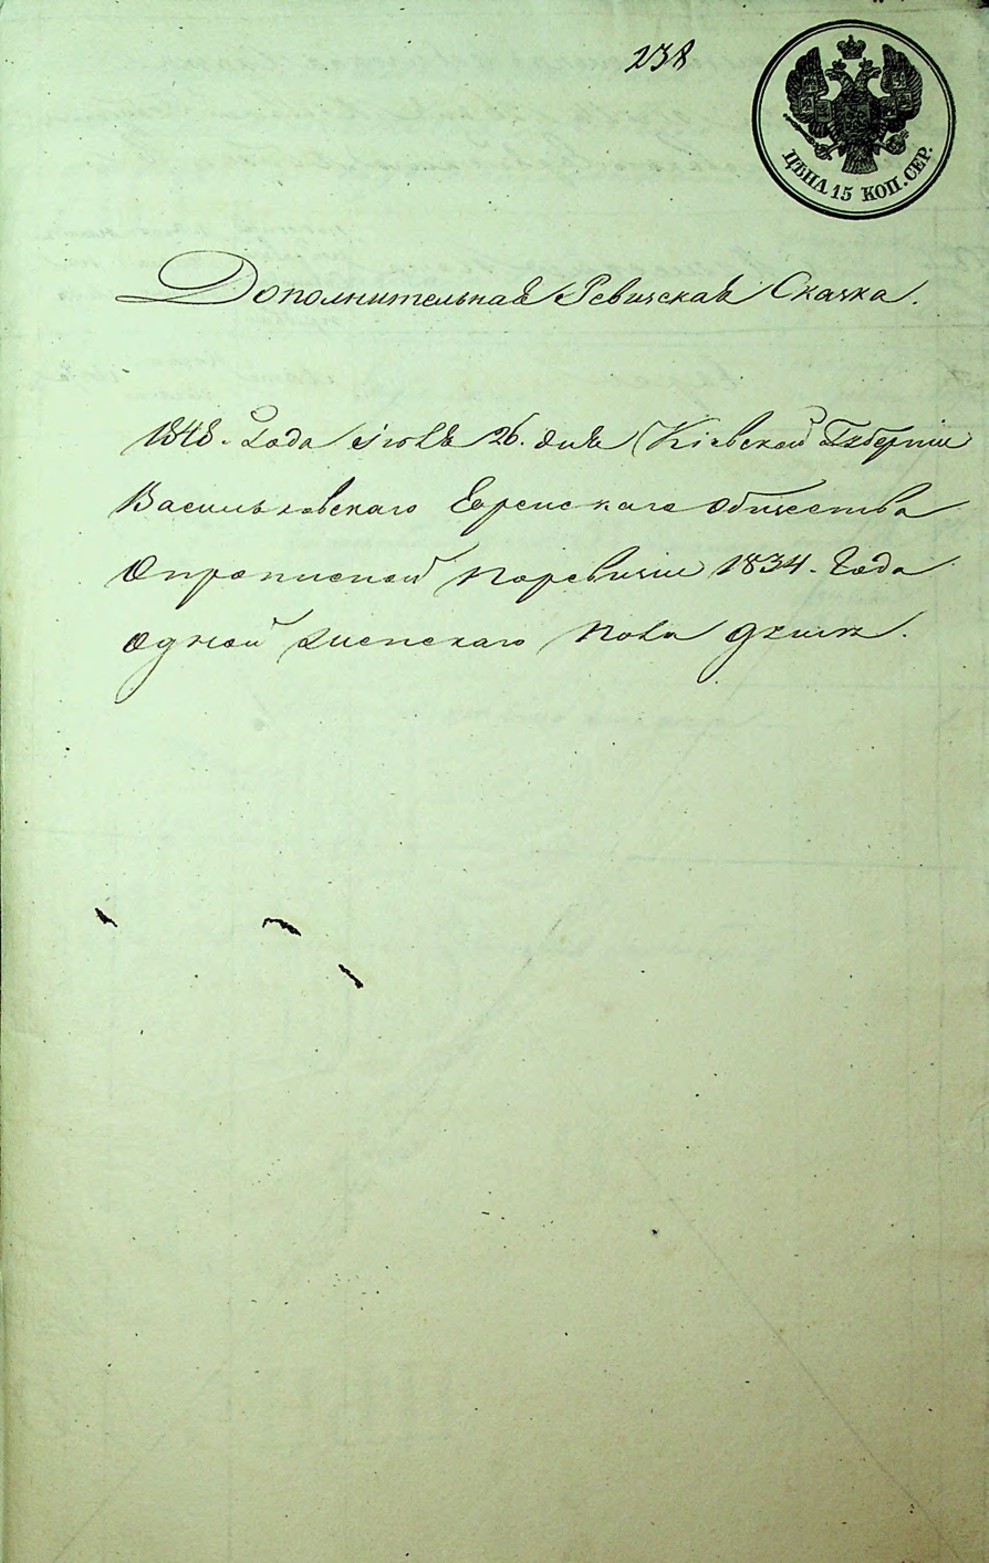 238
ЦѢНА 15 КОП. СЕР.
Дополнительная Ревизская Сказка.
1848. Года Iюля 26. дня Кіевской Губерніи
Васильковскаго Еврейскаго Общества
Опрописной поревизіи 1834. Года
одной женскаго пола души.